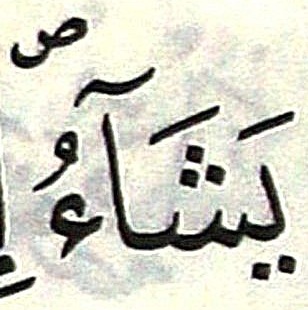 يَشَآءُ ص